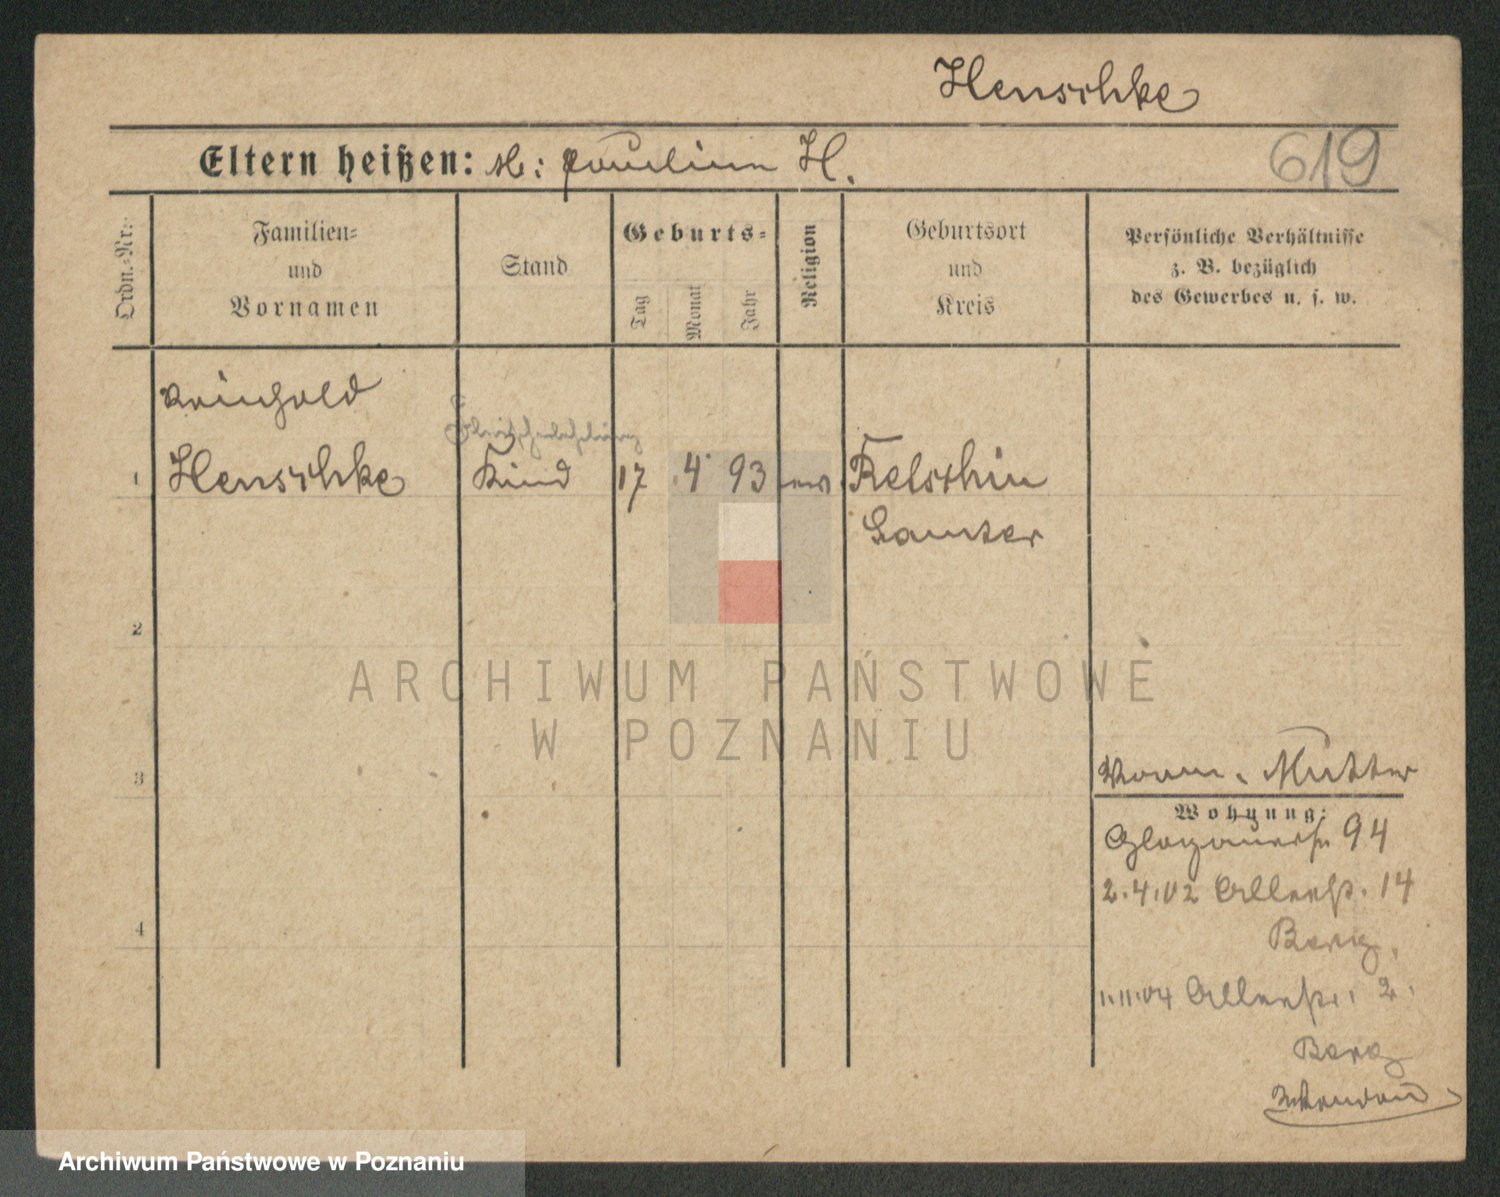 Henschke
Eltern heißen: M: Paulina H.
619
Ordn.-Nr.:
Familien-
und
Vornamen
Stand
Geburts-
Tag
Monat
Jahr
Religion
Geburtsort
und
Kreis
Persönliche Verhältnisse
z. B. bezüglich
des Gewerbes u. s. w.
Reinhold
Fleischerlehrling
1 Henschke Kind 17 4 93 ev. Retschin
Samter
2
3
4
Vorm. Mutter
Wohnung:
Glogauerstr 94
2.4.02 Alleestr. 14
Berg.
1.11.04 Alleestr. 2.
Berg
ARCHIWUM PAŃSTWOWE
W POZNANIU
Archiwum Państwowe w Poznaniu